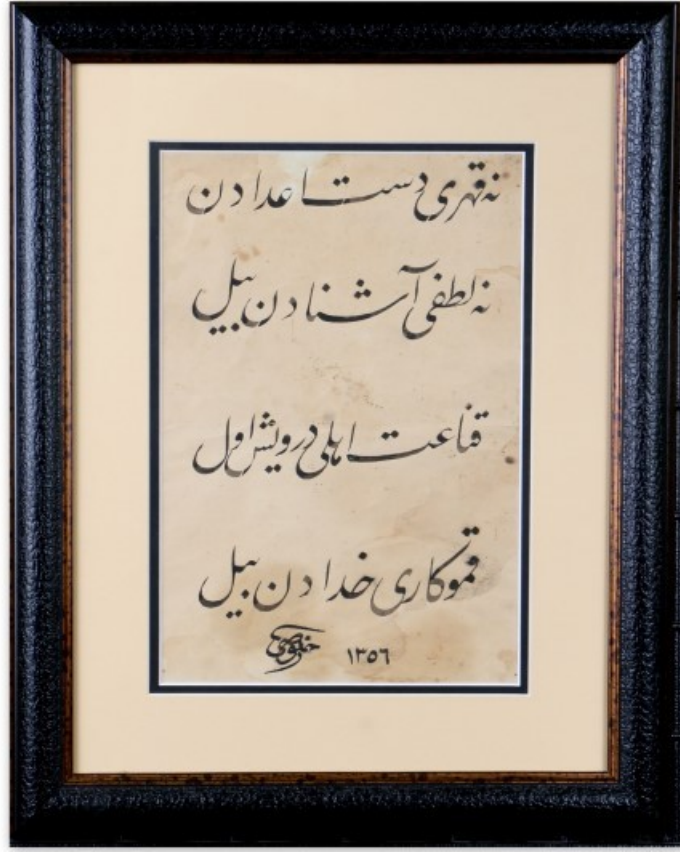 نه قهری دست اعدادن
نه لطفی آشنادن بیل
قناعت اهلی درویش اول
قموکاری خدادن بیل
١٣٥٦